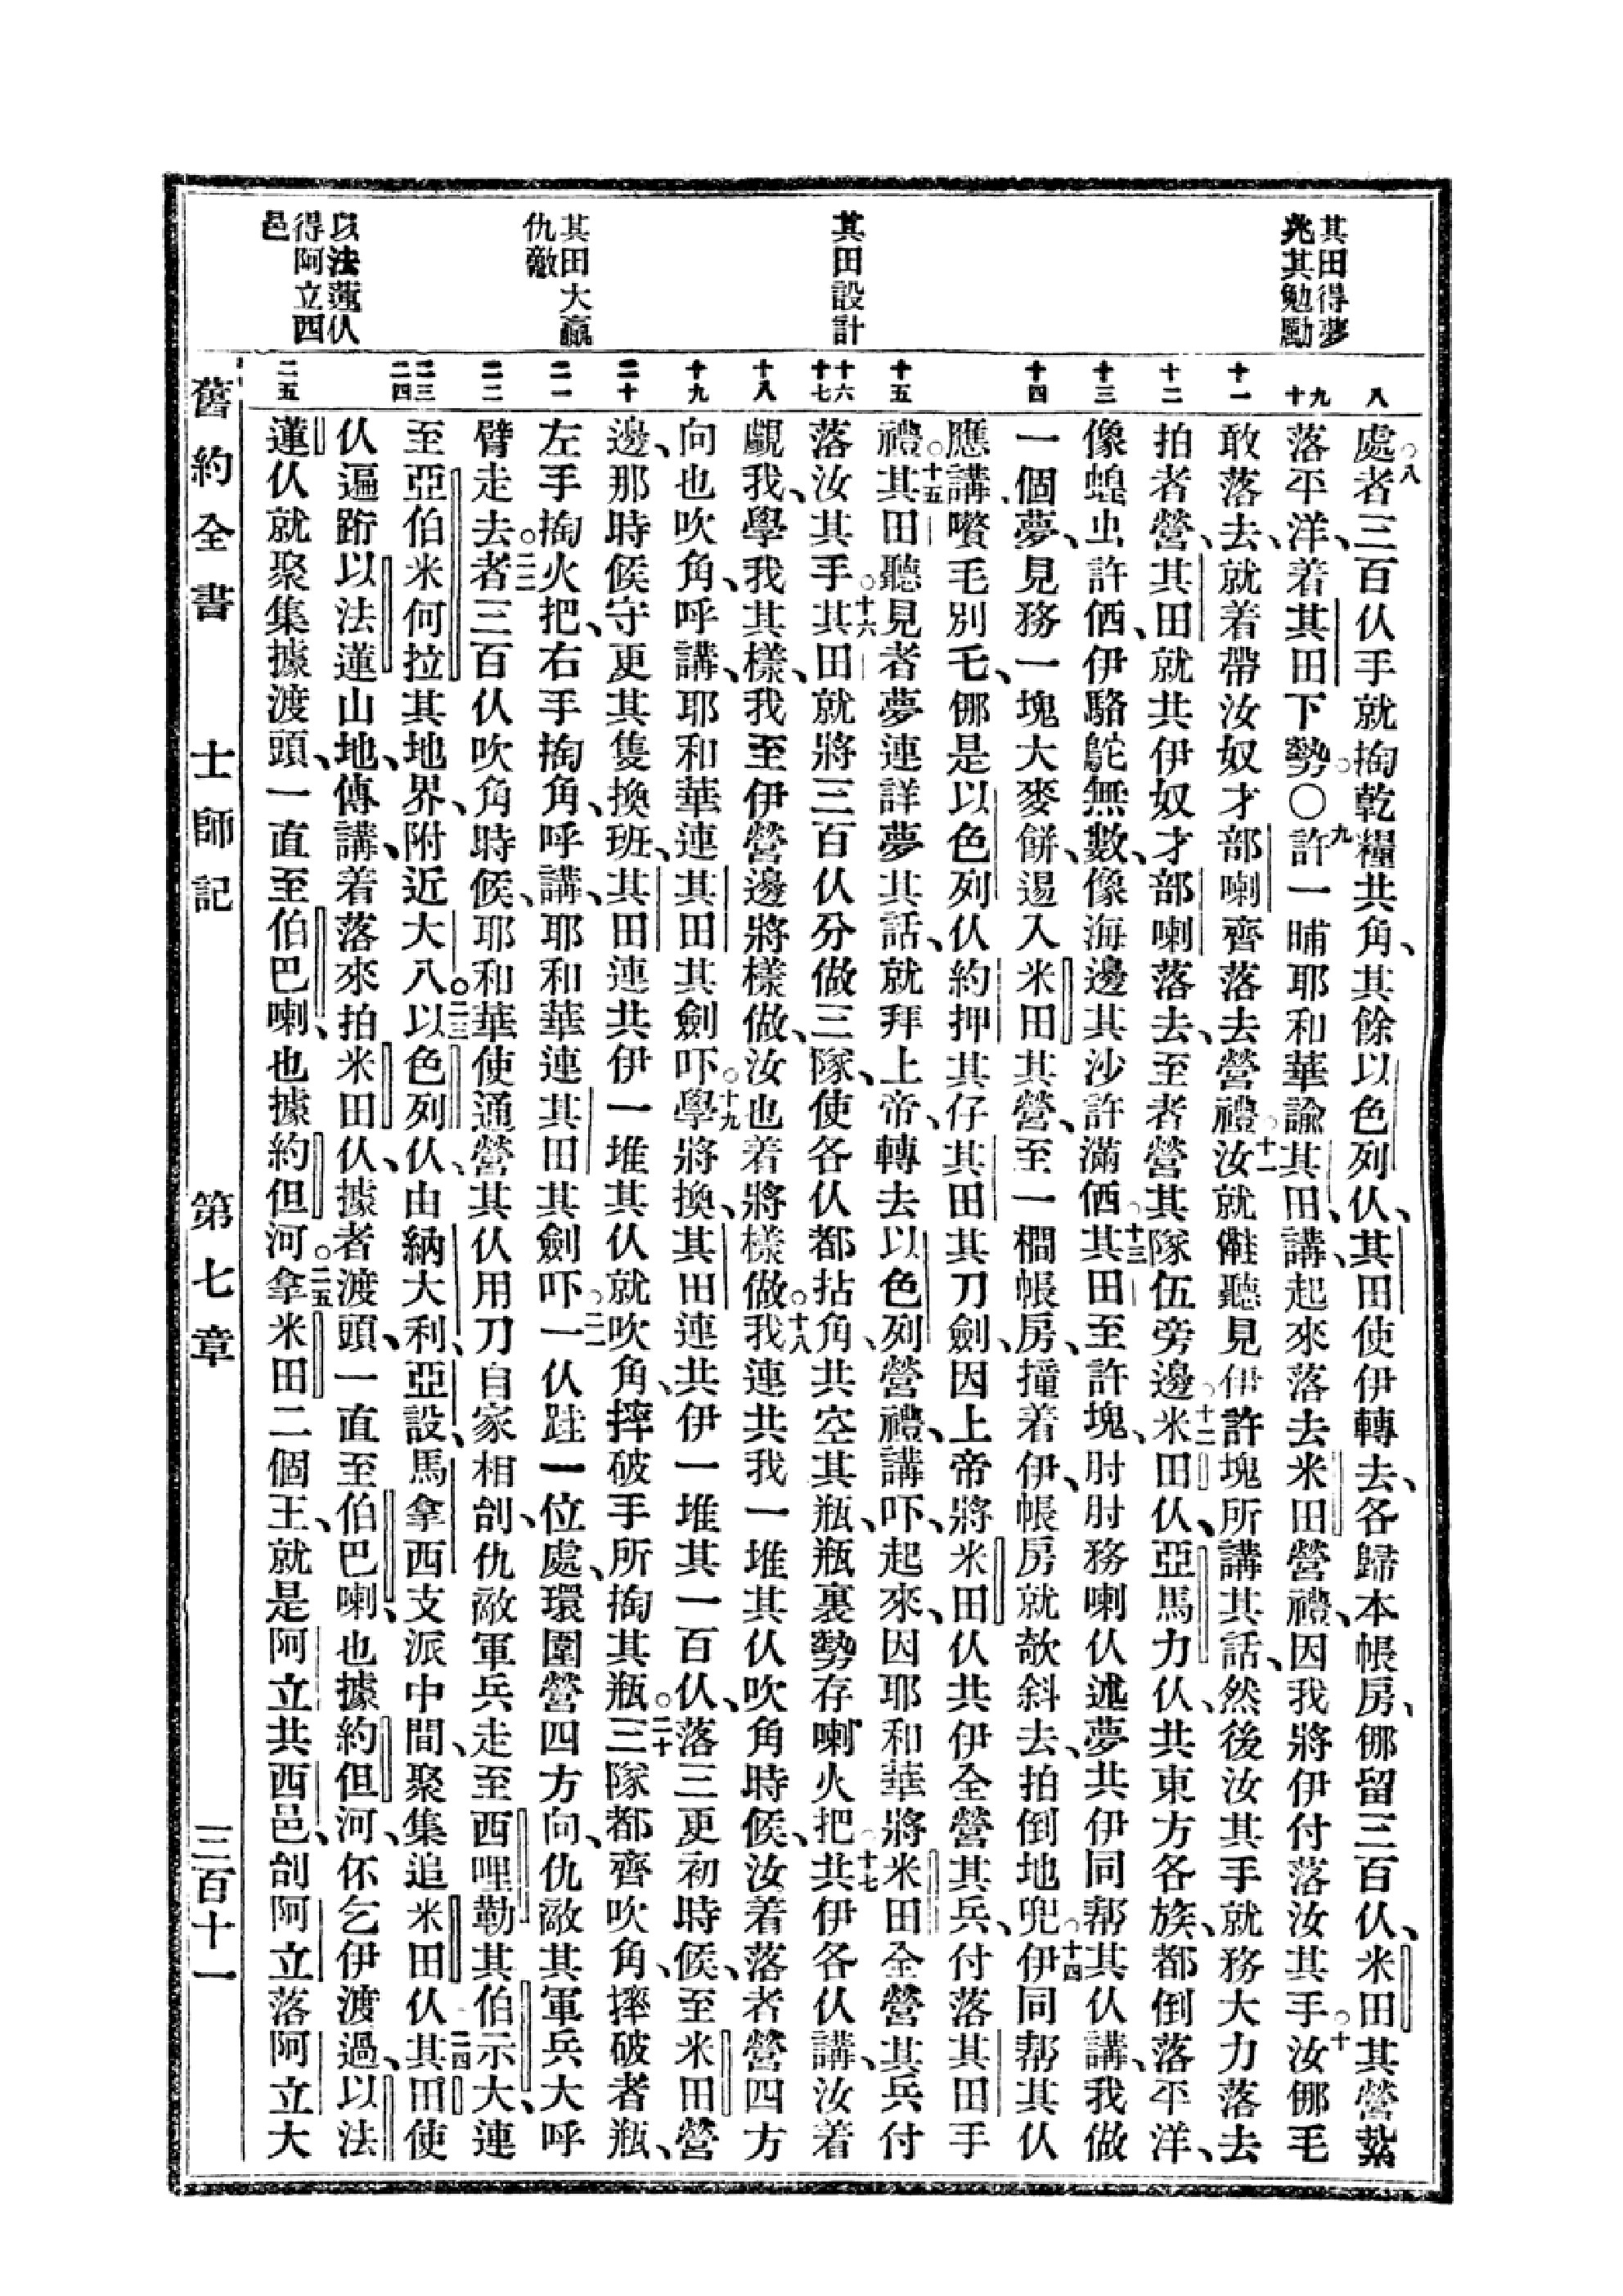 其田得夢
兆其勉勵
其田設計
其田大贏
仇敵
以法蓮仈
得阿立西
邑
八
九
十
十一
十二
十三
十四
十五
十六
十七
十八
十九
二十
二一
二二
二三
二四
二五
處。八者三百仈手就掏乾糧共角、其餘以色列仈、其田使伊轉去、各歸本帳房、㑚留三百仈、米田其營紮
落平洋、着其田下勢。○九許一晡耶和華諭其田、講、起來落去米田營禮、因我將伊付落汝其手。十汝㑚毛
敢落去、就着帶汝奴才部喇齊落去營禮。十一汝就𠆧聽見伊許塊所講其話、然後汝其手就務大力落去
拍者營、其田就共伊奴才部喇落去、至者營其隊伍旁邊。十二米田仈、亞馬力仈、共東方各族、都倒落平洋、
像蝗虫許価、伊駱鴕無數、像海邊其沙許滿価。十三其田至許塊、肘肘務喇仈述夢共伊同帮其仈講、我做
一個夢、見務一塊大麥餅、逿入米田其營、至一橺帳房、撞着伊、帳房就欹斜去、拍倒地兜。十四伊同帮其仈
應講、嚽毛別乇、㑚是以色列仈約押其仔其田其刀劍、因上帝將米田仈共伊全營其兵、付落其田手
禮。十五其田聽見者夢連詳夢其話、就拜上帝、轉去以色列營禮、講吓、起來、因耶和華將米田全營其兵付
落汝其手。十六其田就將三百仈分做三隊、使各仈都拈角、共空其瓶、瓶裏勢存喇火把。十七共伊各仈講、汝着
覷我、學我其樣、我至伊營邊將樣做、汝也着將樣做。十八我連共我一堆其仈吹角時候、汝着落者營四方
向也吹角、呼講、耶和華連其田其劍吓。十九學將換、其田連共伊一堆其一百仈、落三更初時候、至米田營
邊、那時候守更其隻換班、其田連共伊一堆其仈就吹角、摔破手所掏其瓶。二十三隊都齊吹角、摔破者瓶、
左手掏火把、右手掏角、呼講、耶和華連其田其劍吓。二一一仈跬一位處、環圍營四方向、仇敵其軍兵大呼
臂走去。二二者三百仈吹角時候、耶和華使通營其仈用刀自家相刣、仇敵軍兵走至西哩勒其伯示大、連
至亞伯米何拉其地界、附近大八。二三以色列仈、由納大利、亞設、馬拿西支派中間、聚集追米田仈。二四其田使
仈遍跨以法蓮山地、傳講、着落來拍米田仈、據者渡頭、一直至伯巴喇、也據約但河、伓乞伊渡過、以法
蓮仈就聚集據渡頭、一直至伯巴喇、也據約但河。二五拿米田二個王、就是阿立共西邑、刣阿立落阿立大
舊約全書　士師記　第七章　三百十一